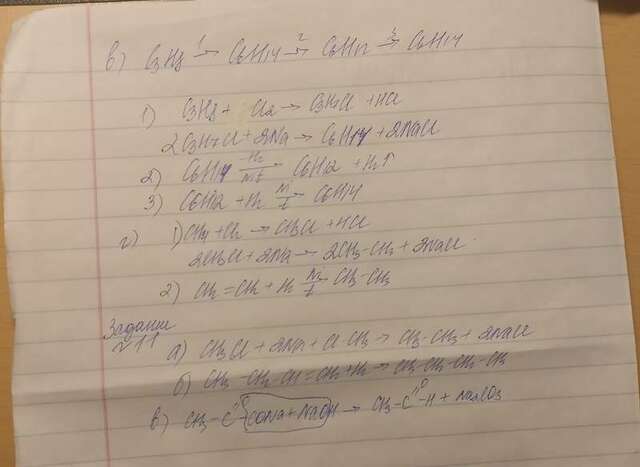 в) C3H8 1→ C6H14 2→ C6H12 3→ C6H14
1) C3H8 + Cl2 → C3H7Cl + HCl
2C3H7Cl + 2Na → C6H14 + 2NaCl
2) C6H14 → C6H12 + H2↑
3) C6H12 + H2 Ni t→ C6H14
г) 1) CH4 + Cl2 → CH3Cl + HCl
2CH3Cl + 2Na → 2CH3-CH3 + 2NaCl
2) CH2 = CH2 + H2 Ni t→ CH3-CH3
Задание
№11
а) CH3Cl + 2Na + Cl CH3 → CH3-CH3 + 2NaCl
б) CH3-CH2-CH=CH2+H2 → CH3-CH2-CH2-CH3
в) CH3-C O CONa + NaOH → CH3-C O -H + Na2CO3